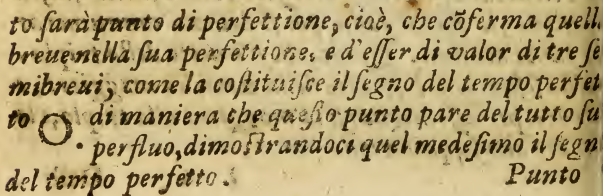 to sarà punto di perfettione, cioè, che cõferma quell
breue nella sua perfettione, e d'esser di valor di tre se
mibreui, come la costituisce il segno del tempo perfet
to di maniera che questo punto pare del tutto su
perfluo, dimostrandoci quel medesimo il segn
del tempo perfetto. Punto